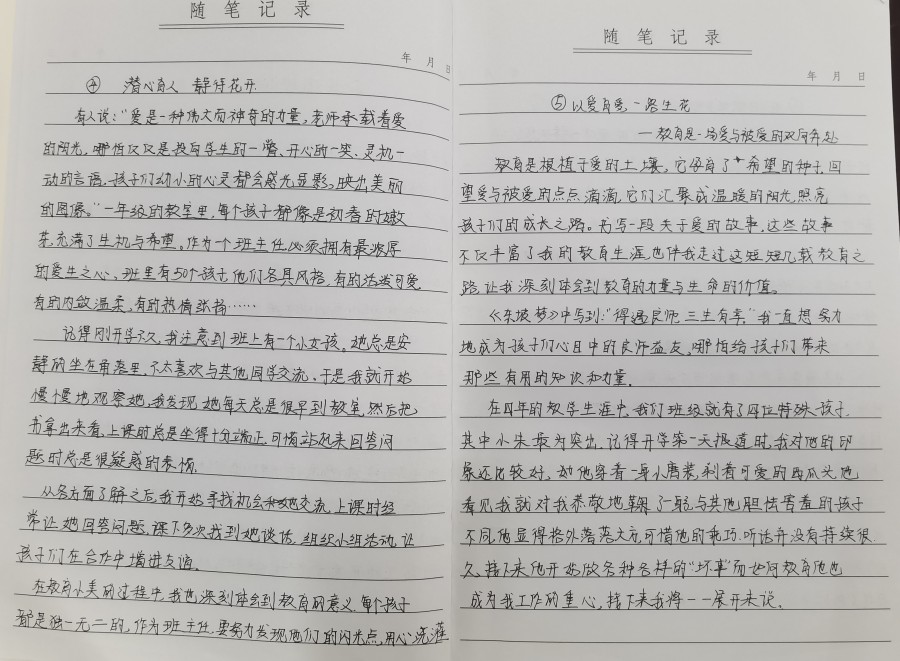 随笔记录
年 月 日
④ 潜心育人 静待花开
有人说:“爱是一种伟大而神奇的力量,老师承载着爱
的阳光,哪怕仅仅是投向学生的一瞥、开心的一笑、灵机一
动的言语,孩子们幼小的心灵都会感光显影,映出美丽
的图像。”一年级的教室里,每个孩子都像是初春的嫩
芽,充满了生机与希望。作为一个班主任必须拥有最浓厚
的爱生之心、班里有50个孩子,他们各具风格,有的活泼可爱
有的内敛温柔,有的热情张扬……
记得刚开学不久,我注意到班上有一个小女孩。她总是安
静的坐在角落里,不太喜欢与其他同学交流、于是我就开始
慢慢地观察她,我发现她每天总是很早到教室,然后把
书拿出来看,上课时总是坐得十分端正,可惜站起来回答问
题时总是很疑惑的表情.
从各方面了解之后,我开始寻找机会和她交流,上课时经
常让她回答问题,课下多次找到她谈话,组织小组活动,让
孩子们在合作中增进友谊.
在教育小美的过程中,我也深刻体会到教育的意义.每个孩子
都是独一无二的,作为班主任.要努力发现他们的闪光点,用心浇灌
随笔记录
年 月 日
⑤ 以爱育爱,一路生花
—教育是一场爱与被爱的双向奔赴
教育是根植于爱的土壤,它孕育了个希望的种子,回
望爱与被爱的点点滴滴,它们汇聚成温暖的阳光,照亮
孩子们的成长之路。书写一段关于爱的故事,这些故事
不仅丰富了我的教育生涯,也伴我走过这短短几载教育之
路,让我深刻体会到教育的力量与生命的价值。
《东坡梦》中写到:“得遇良师,三生有幸.”我一直想努力
地成为孩子们心目中的良师益友,哪怕给孩子们带来
那些有用的知识和力量.
在四年的教学生涯中,我们班级就有了四位特殊孩子.
其中小朱最为突出,记得开学第一天报道时,我对他的印
象还比较好,劝他穿着一身小唐装,剃着可爱的西瓜头,他
看见我就对我恭敬地鞠了一躬,与其他胆怯害羞的孩子
不同,他显得格外落落大方,可惜他的乖巧.听话并没有持续很
久,接下来他开始做各种各样的“坏事”而如何教育他也
成为我工作的重心,接下来我将一一展开来说.